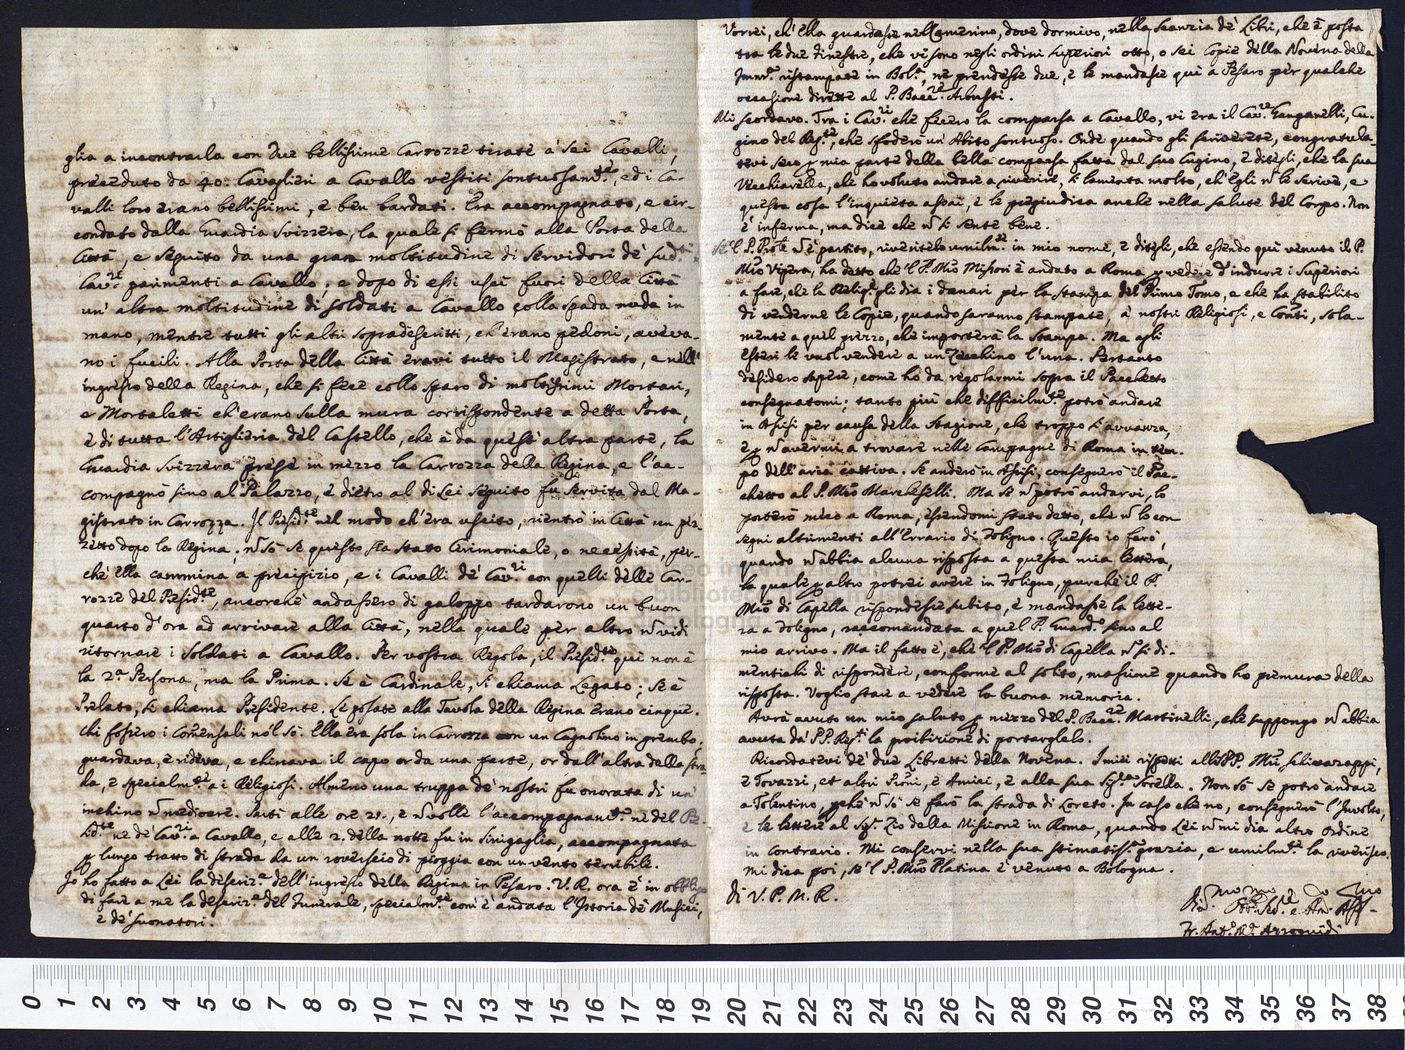 glia a incontrarla con due bellissime Carrozze tirate a sei Cavalli,
preceduto da 40: Cavaglieri a Cavallo vestiti sontuosam.te, ed i Ca-
valli loro erano bellissimi, e ben bardati. Era accompagnato, e cir-
condato dalla Guardia Svizzera, la quale si fermò alla Porta della
Città, e seguito da una gran moltitudine di servidori de' sud.ti
Cav.ri parimenti a Cavallo; e dopo di essi uscì fuori della Città
un'altra moltitudine di soldati a Cavallo colla spada nuda in
mano, mentre tutti gli altri sopradescritti, ch'erano pedoni, aveva-
no i fucili. Alla Porta della Città eravi tutto il Magistrato, e nell'
ingresso della Regina, che si fece collo sparo di moltissimi Mortari,
e Mortaletti ch'erano sulla mura corrispondente a detta Porta,
e di tutta l'Artiglieria del Castello, che è da quest'altra parte, la
Guardia Svizzera prese in mezzo la Carrozza della Regina, e l'ac-
compagnò sino al Palazzo, e dietro al di Lei seguito fu servita dal Ma-
gistrato in Carrozza. Il Presid.te nel modo ch'era uscito, rientrò in Città un pez-
zetto dopo la Regina; nò sò se questo sia stato Cerimoniale, o necessità, per-
ché ella cammina a precipizio, e i Cavalli de' Cav.ri con quelli delle Car-
rozze del Presid.te, ancorché andassero di galoppo tardarono un buon
quarto d'ora ad arrivare alla Città, nella quale per altro nò vidi
ritornare i Soldati a Cavallo. Per vostra Regola, il Presid.te quì non è
la 2.a Persona, ma la Prima. Se è Cardinale, si chiama Legato; se è
Prelato, si chiama Presidente. Le posate alla Tavola della Regina erano cinque.
Chi fossero i Comensali nol sò. Ella era sola in Carrozza con un Cagnolino in grembo,
guardava, e rideva, e chinava il capo or da una parte, or dall'altra della stra-
da, e specialm.te a i Religiosi. Almeno una truppa de' nostri fu onorata di un'
inchino nò mediocre. Partì alle ore 21., e nò volle l'accompagnam.to ne del Pre-
sid.te ne de' Cav.ri a Cavallo, e alle 2. della notte fu in Sinigaglia, accompagnata
p lungo tratto di strada da un rovescio di pioggia con un vento terribile.
Io ho fatto a Lei la descriz.e dell'ingresso della Regina in Pesaro. V. R. ora è in obbligo
di fare a me la descriz.e del Funerale, specialm.te com'è andata l'Istoria de' Musici,
e de' suonatori.
Vorrei, ch'ella guardasse nel Camerino, dove dormivo, nella scanzia de' Libri, che è posta
tra le due finestre, che vi sono negli ordini superiori otto, o sei Copie della Novena della
Imm.a ristampate in Bol.a, ne prendesse due, e le mandasse quì a Pesaro per qualche
occasione dirette al P. Bacc.re
Mi scordavo. Tra i Cav.ri che fecero la comparsa a Cavallo, vi era il Cav.re Ganganelli, Cu-
gino del Reg.te, che sfoderò un'Abito sontuoso. Onde quando gli scriverete, congratula-
tevi seco p mia parte della bella comparsa fatta dal suo Cugino, e ditegli, che la sua
Vecchiarella, che ho voluto andare a riverire, si lamenta molto, ch'Egli nò le scrive, e
questa cosa l'inquieta assai, e le pregiudica anche nella salute del Corpo. Non
è inferma, ma dice che nò si sente bene.
Se 'l P. Pro.le nò è partito, riveritelo umilm.te in mio nome, e ditegli, che essendo quì venuto il P.
Mro Vipera, ha detto che 'l P. Mro Missori è andato a Roma p vedere d'indurre i Superiori
a fare, che la Relig.e gli dia i danari per la stampa del Primo Tomo, e che ha stabilito
di venderne le Copie, quando saranno stampate, a' nostri Religiosi, e Conti, sola-
mente a quel prezzo, che importerà la Stampa. Ma agli
esteri le vuol vendere a un Zecchino l'una. Pertanto
desidero sapere, come ho da regolarmi sopra il Pacchetto
consegnatomi; tanto più che difficilm.te potrò andare
in Assisi per causa della Stagione, che troppo si avvanza,
e p nò avermi a trovare nelle Campagne di Roma in tem-
po dell'aria cattiva. Se anderò in Assisi, consegnerò il Pac-
chetto al P. Mro Marcheselli. Ma se nò potrò andarvi, lo
porterò meco a Roma, essendomi stato detto, che nò lo con-
segni altrimenti all'Errario di Foligno. Questo io farò,
quando nò abbia alcuna risposta a questa mia lettera,
la quale p altro potrei avere in Foligno, purché il P.
Mro di Capella rispondesse subito, e mandasse la lette-
ra a Foligno, raccomandata a quel P. Guard.o sino al
mio arrivo. Ma il fatto è, che 'l P. Mro di Capella nò si di-
mentichi di rispondere, conforme al solito, massime quando ho premura della
risposta. Voglio stare a vedere la buona memoria.
Avrà avuto un mio saluto p mezzo del P. Bacc.re Martinelli, che suppongo nò abbia
avuta da' PP. Reg.ti la proibizione di portarglelo.
Ricordatevi de' due Libretti della Novena. I miei rispetti alli PP. Mri
e Tovazzi, et altri Proni, e Amici, e alla sua Sig.ra Sorella. Non sò se potrò andare
a Tolentino, pché nò sò se farò la strada di Loreto. In caso che no, consegnerò l'Involto,
e le lettere al Sig. Zio della Missione in Roma, quando Lei nò mi dia altro ordine
in contrario. Mi conservi nella sua stimatiss.a grazia, e umilm.te la riverisco.
Mi dica poi, se 'l P. Mro Platina è venuto a Bologna.
di V. P. M. R.